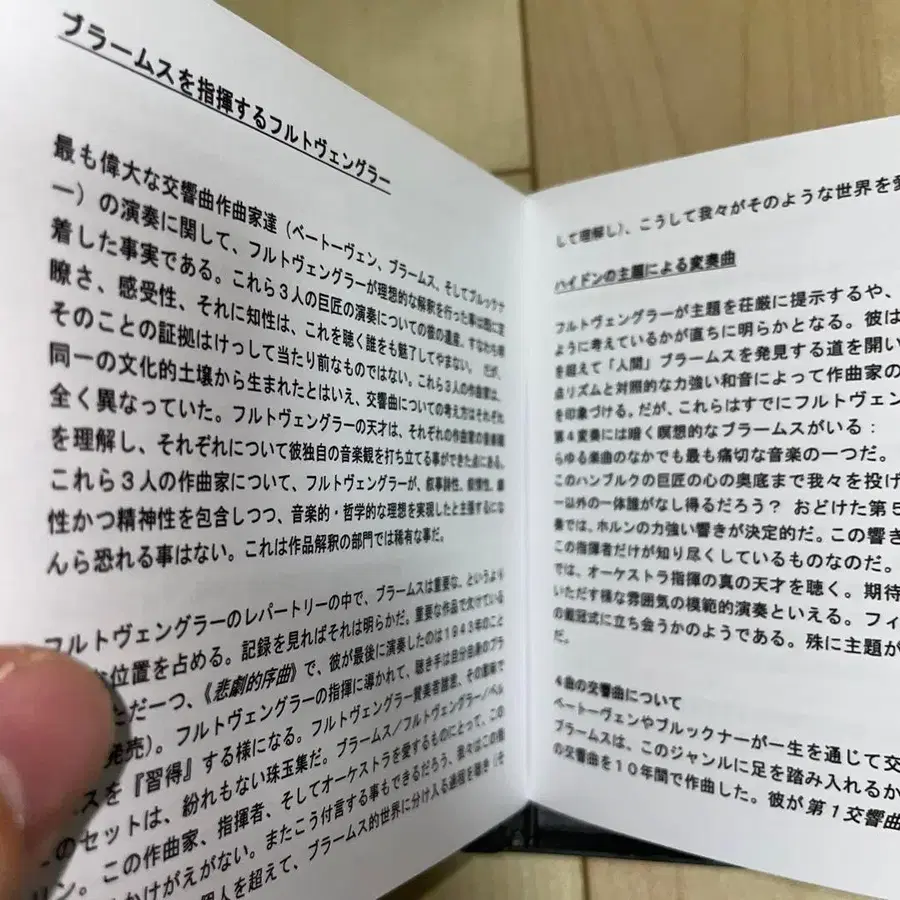 ブラームスを指揮するフルトヴェングラー
最も偉大な交響曲作曲家達(ベートーヴェン、ブラームス、そしてブルックナ
ー)の演奏に関して、フルトヴェングラーが理想的な解釈を行った事は既に定
着した事実である。これら3人の巨匠の演奏についての彼の遺産、すなわち明
瞭さ、感受性、それに知性は、これを聴く誰をも魅了してやまない。だが、
そのことの証拠はけっして当たり前なものではない。これら3人の作曲家は、
同一の文化的土壌から生まれたとはいえ、交響曲についての考え方はそれぞれ
全く異なっていた。フルトヴェングラーの天才は、それぞれの作曲家の音楽観
を理解し、それぞれについて彼独自の音楽観を打ち立てる事ができた点にある。
これら3人の作曲家について、フルトヴェングラーが、叙事詩性、叙情性、劇
性かつ精神性を包含しつつ、音楽的・哲学的な理想を実現したと主張するにな
んら恐れる事はない。これは作品解釈の部門では稀有な事だ。
フルトヴェングラーのレパートリーの中で、ブラームスは重要な、というより
な位置を占める。記録を見ればそれは明らかだ。重要な作品で欠けている
ただ一つ、《悲劇的序曲》で、彼が最後に演奏したのは1943年のこと
発売)。フルトヴェングラーの指揮に導かれて、聴き手は自分自身のブラ
スを『習得』する様になる。フルトヴェングラー賛美者諸君、その意味で
のセットは、紛れもない珠玉集だ。ブラームス/フルトヴェングラー/ベル
リン。この作曲家、指揮者、そしてオーケストラを愛するものにとって、この
かけがえがない。またこう付言する事もできるだろう、我々はこの指
個人を超えて、ブラームス的世界に分け入る過程を聴き(そ
して理解し)、こうして我々がそのような世界を愛
ハイドンの主題による変奏曲
フルトヴェングラーが主題を荘厳に提示するや、
ように考えているかが直ちに明らかとなる。彼は
を超えて「人間」ブラームスを発見する道を開い
点リズムと対照的な力強い和音によって作曲家の
を印象づける。だが、これらはすでにフルトヴェン
第4変奏には暗く瞑想的なブラームスがいる:
らゆる楽曲のなかでも最も痛切な音楽の一つだ。
このハンブルクの巨匠の心の奥底まで我々を投げ
ー以外の一体誰がなし得るだろう? おどけた第5
奏では、ホルンの力強い響きが決定的だ。この響き
この指揮者だけが知り尽くしているものなのだ。
では、オーケストラ指揮の真の天才を聴く。期待
いただす様な雰囲気の模範的演奏といえる。フィ
の戴冠式に立ち会うかのようである。殊に主題が
だ。
4曲の交響曲について
ベートーヴェンやブルックナーが一生を通じて交
ブラームスは、このジャンルに足を踏み入れるか
の交響曲を10年間で作曲した。彼が第1交響曲